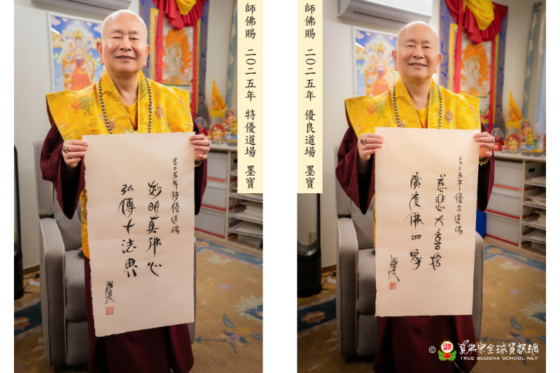 師佛賜 二〇二五年 特優道場 墨寶
二〇二五年特優道場
明真佛心
弘傳十法
師佛賜 二〇二五年 優良道場 墨寶
二〇二五年優良道場
慈悲大喜捨
廣度佛
© 真佛宗全球資訊網
TRUE BUDDHA SCHOOL NET